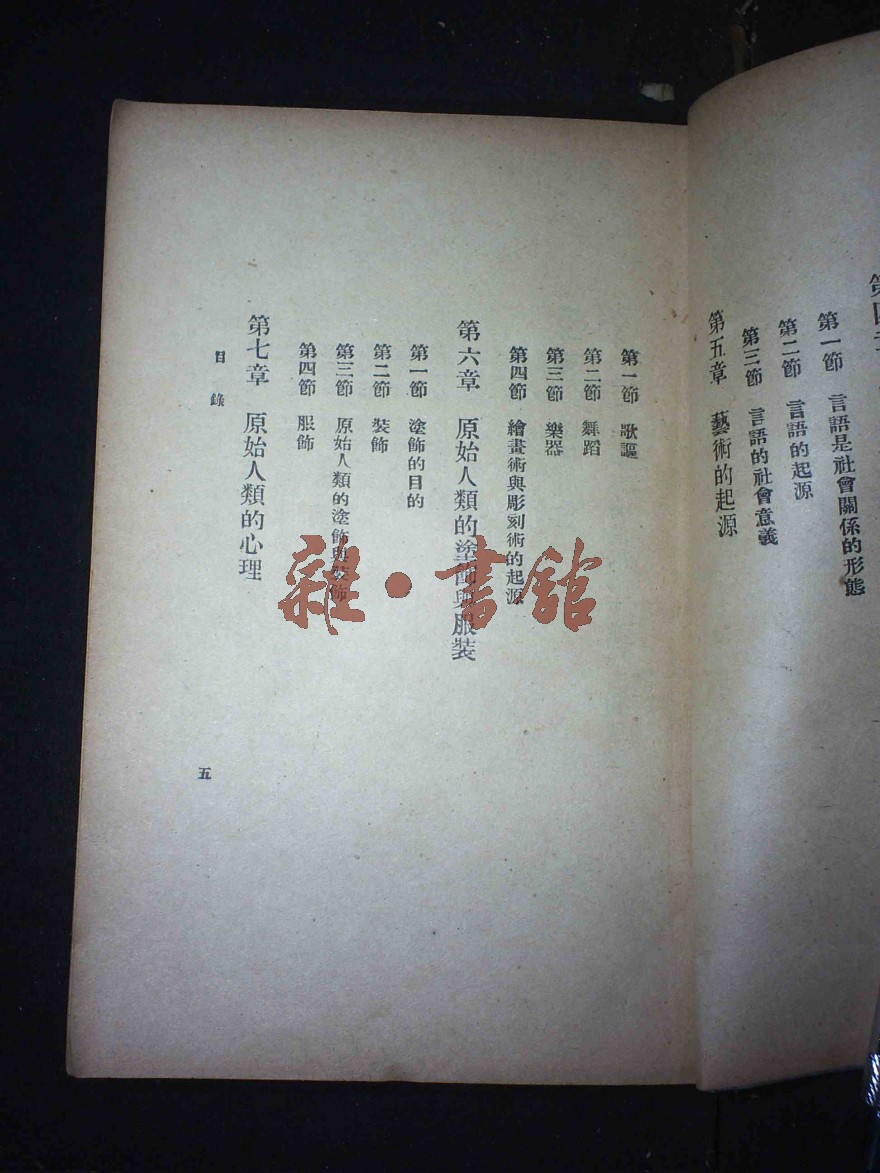 第一節 言語是社會關係的形態
第二節 言語的起源
第三節 言語的社會意義
第五章 藝術的起源
第一節 歌謳
第二節 舞蹈
第三節 樂器
第四節 繪畫術與彫刻術的起源
第六章 原始人類的塗飾與服裝
第一節 塗飾的目的
第二節 裝飾
第三節 原始人類的塗飾與裝飾
第四節 服飾
第七章 原始人類的心理
目錄
五
雜·書館